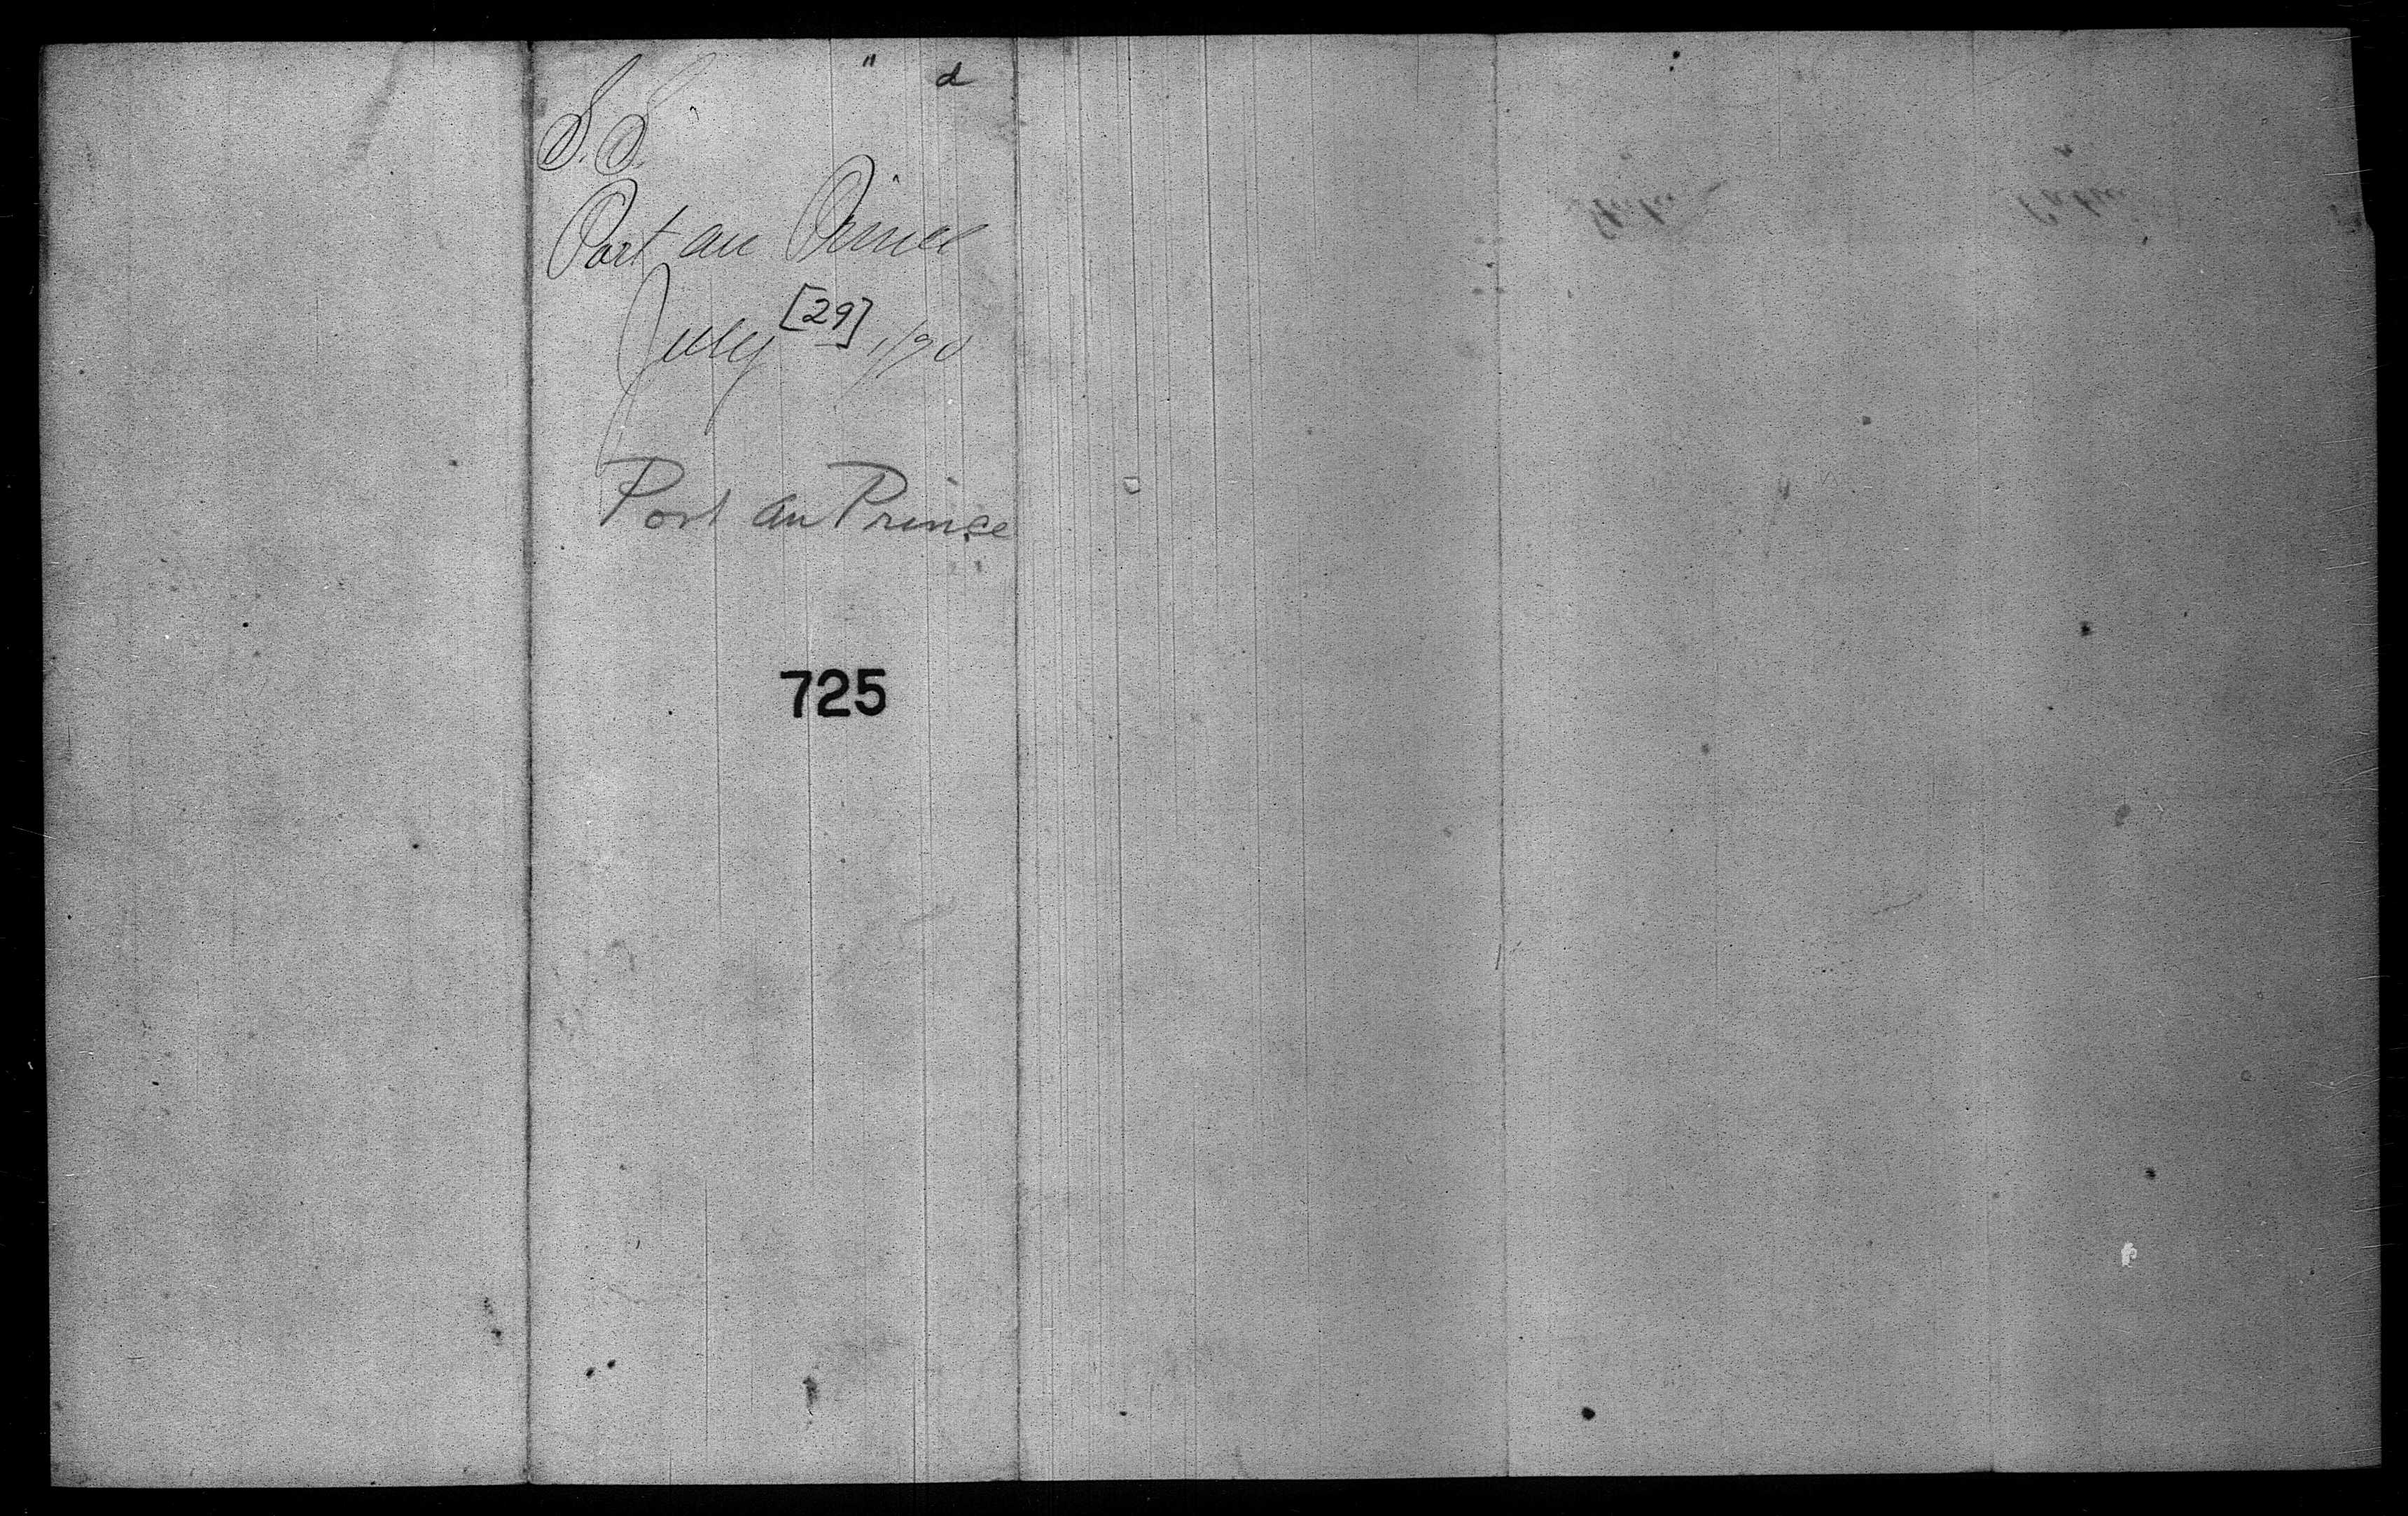 " d
S.S.
Port au Prince
July [29], /90
Port au Prince
725